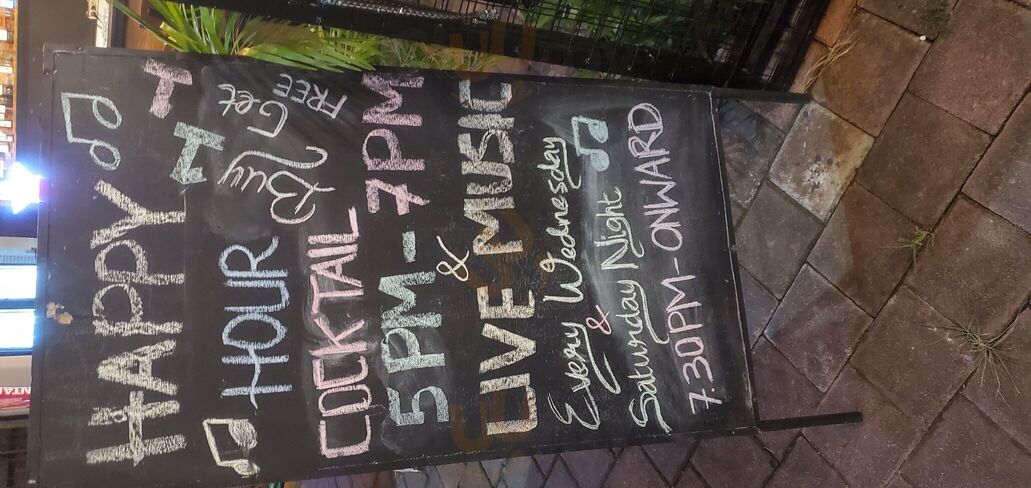 HAPPY
HOUR Buy 1 Get
FREE
COCKTAIL
5PM - 7PM
&
LIVE MUSIC
Every Wednesday
&
Saturday Night
7:30PM - ONWARD